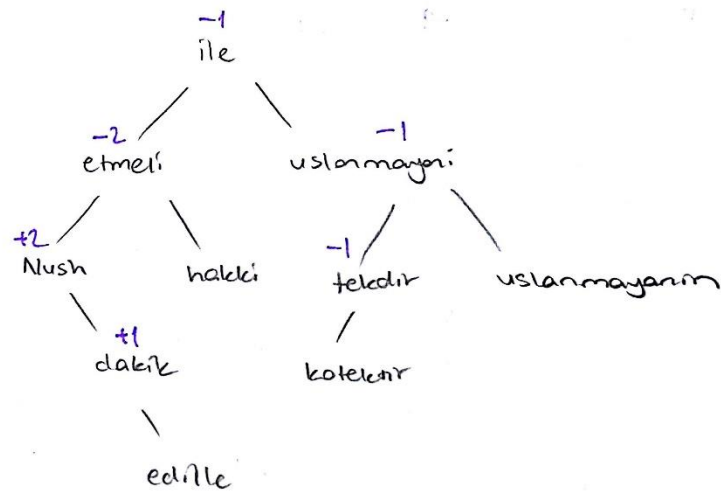 -1
ile
-2 -1
etmeli uslanmayani
+2 -1
Nush hakki tekdir uslanmayanin
+1
dakik kotektir
edille